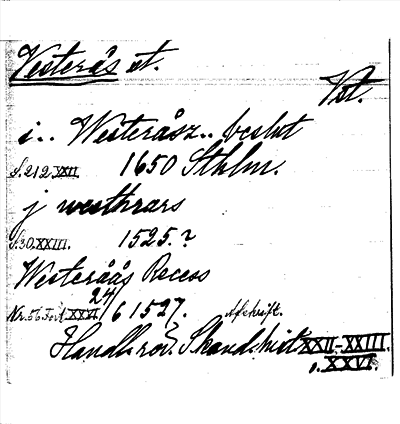 Vesterås st.
Vst.
i.. Westeråsz.. beslut
S.212.XXII. 1650 Sthlm.
j westhrars
S.30.XXIII. 1525.?
Westeråås Recess
Nr.56 XXVI. 24/6 1527. Afskrift.
Handl. rör. Skand. hist XXII-XXIII.
o. XXVI.